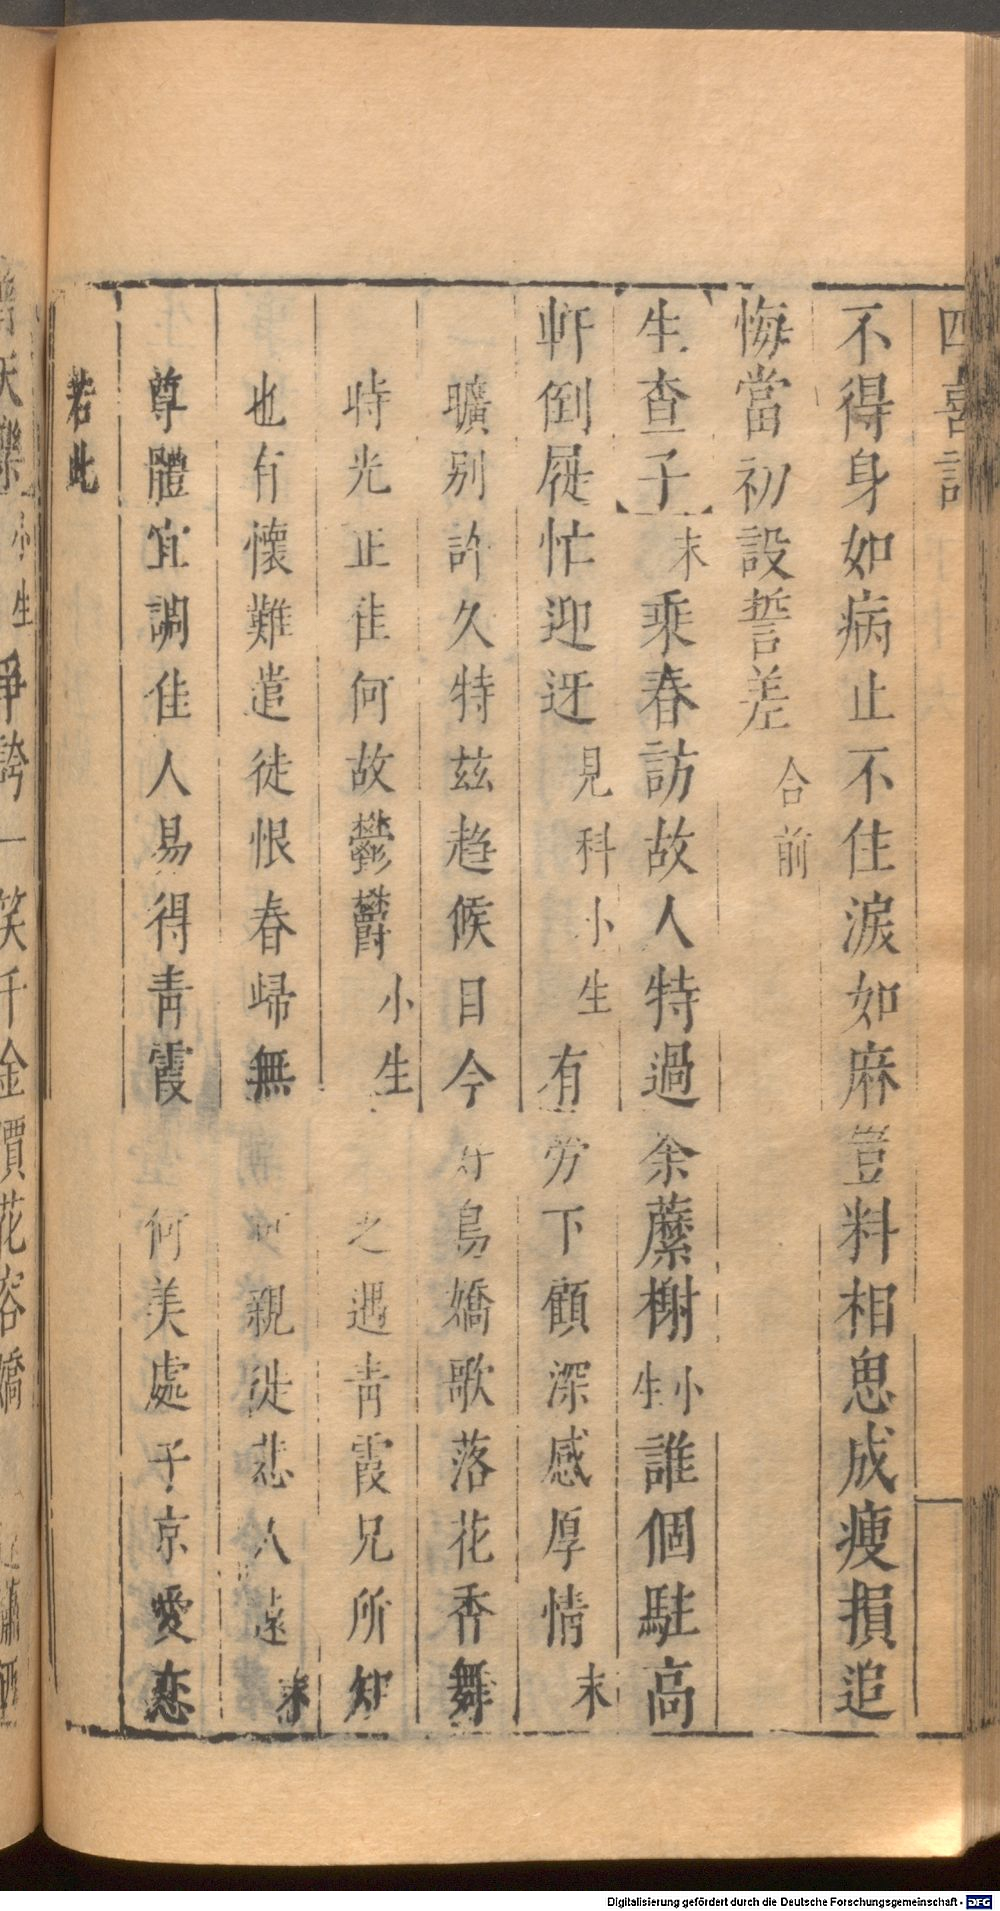 四喜記
不得身如病止不住淚如麻豈料相思成瘦損追
悔當初設誓差合前
生查子末乘春訪故人特過余蘪榭小生誰個駐高
軒倒屣忙迎迓見科小生有勞下顧深感厚情末
曠別許久特茲趋候目今好鳥嬌歌落花香舞
時光正佳何故鬱鬱小生之遇青霞兄所知
也有懷難遣徒恨春歸無親徙悲人遠末
尊體宜調佳人易得青霞何美處子京愛戀
若此
天樂小生爭誇一笑千金價花容嬌
Digitalisierung gefördert durch die Deutsche Forschungsgemeinschaft - DFG